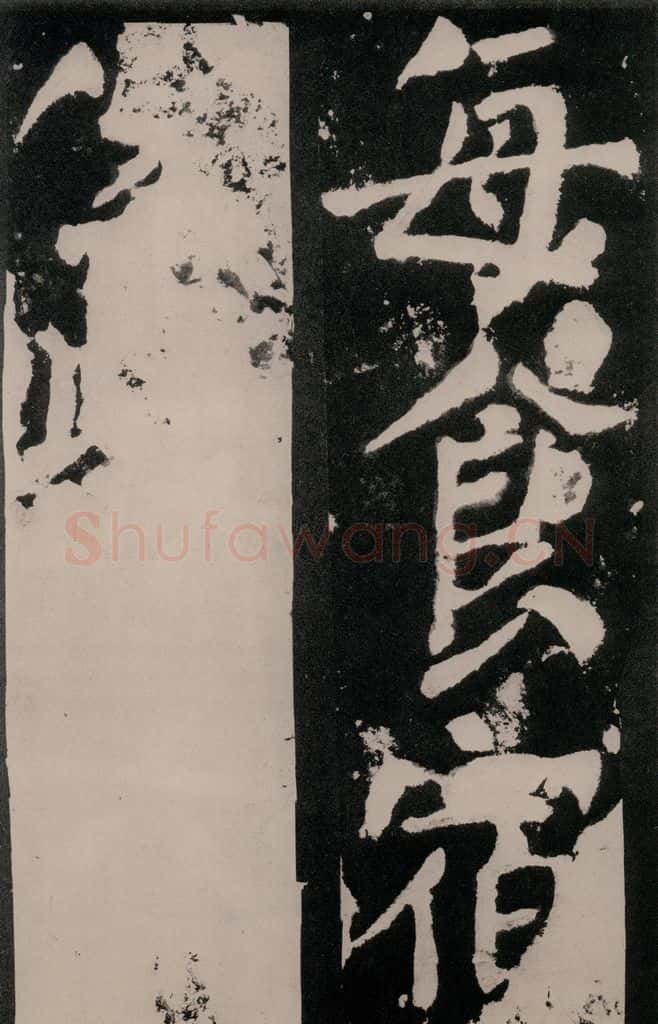 每食宿
Shufawang.CN